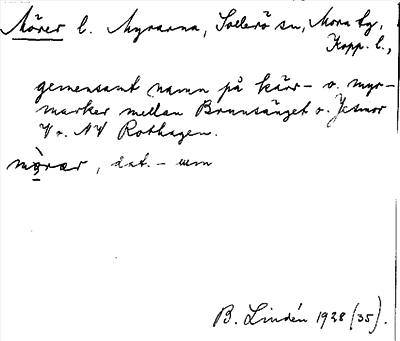 Mörer l. Myrarna, Sollerö sn, Mora tg,
Kopp. l.,
gemensamt namn på kärr- o. myr-
marker mellan Brunsänget o. Jetmor
V o. NV Rothagen.
mö̀rær, dat. - um
B. Lindén 1928 (35).